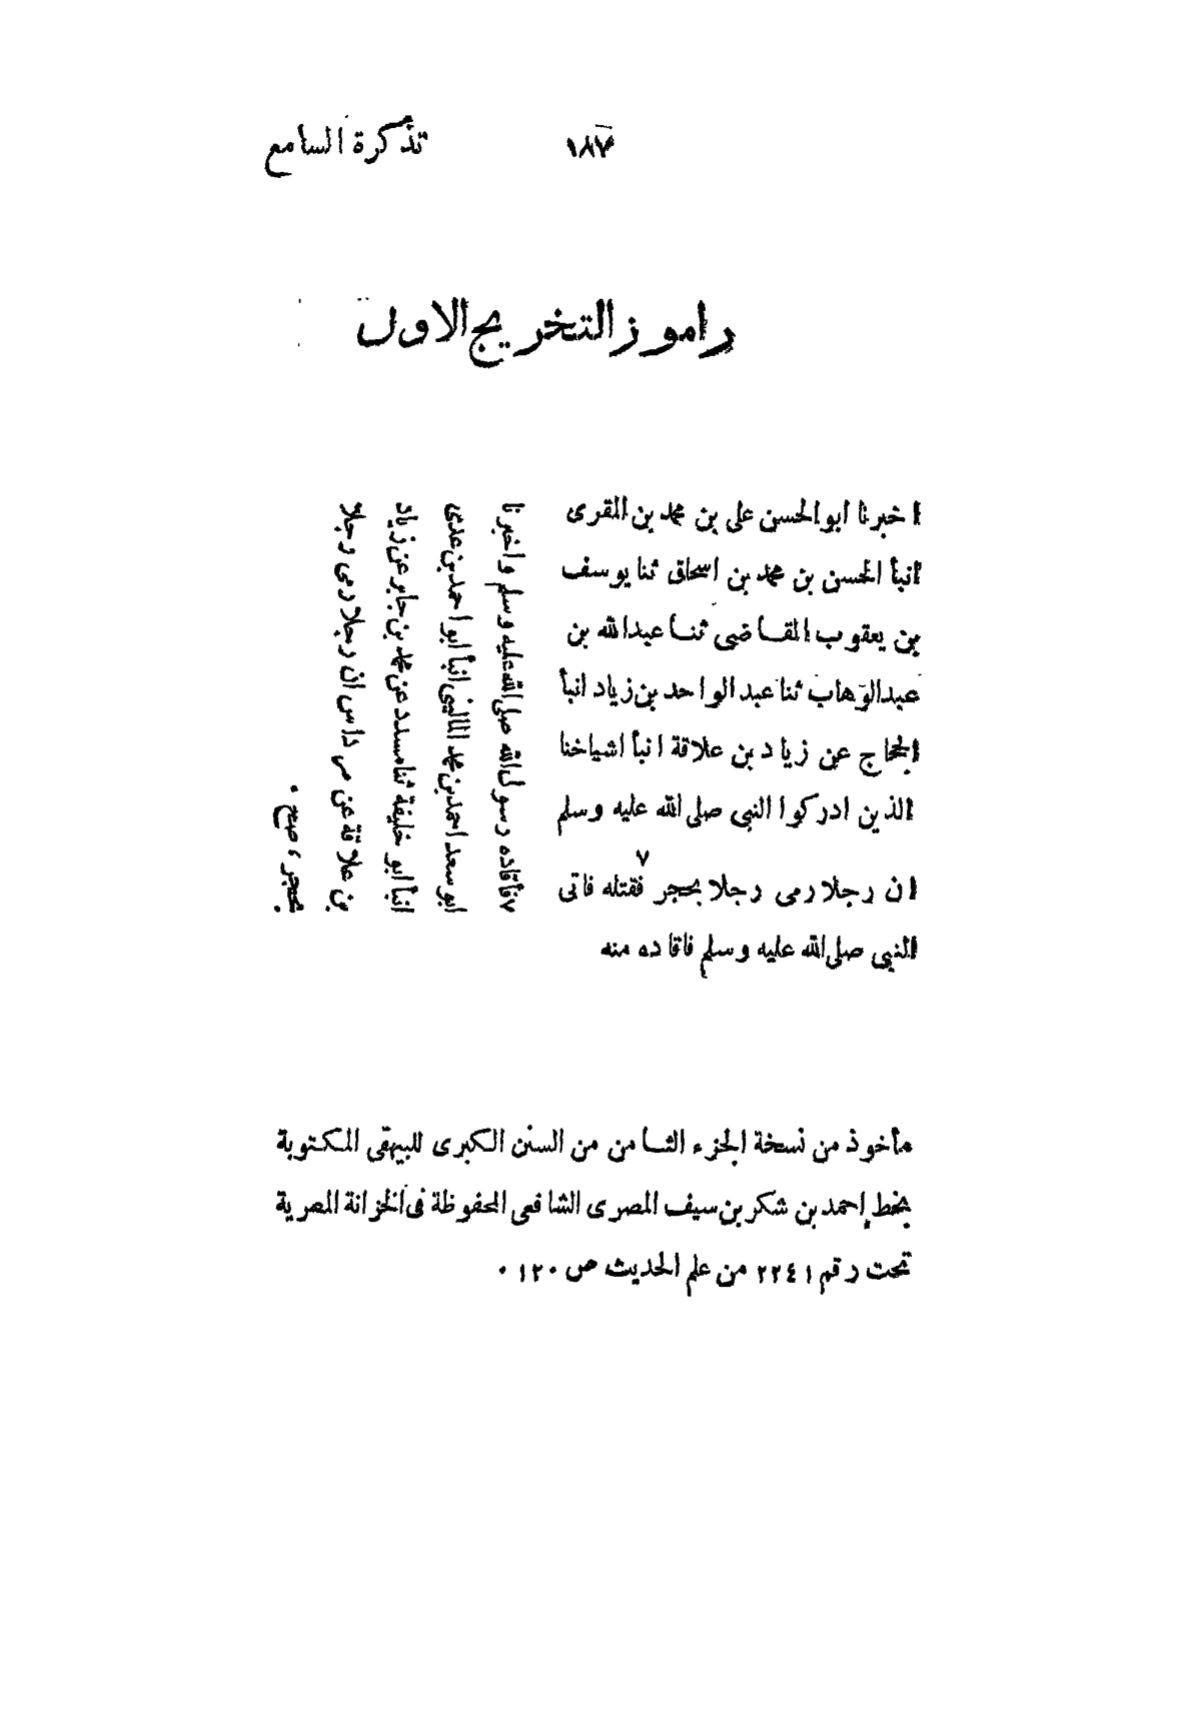 تذكرة السامع
١٨٧
راموز التخريج الاول
اخبرنا ابوالحسن على بن محمد بن المقرى
انبأ الحسن بن محمد بن اسحاق ثنا يوسف
بن يعقوب القاضى ثنا عبدالله بن
عبدالوهاب ثنا عبد الواحد بن زياد انبأ
الحجاج عن زياد بن علاقة انبأ اشياخنا
الذين ادركوا النبى صلى الله عليه وسلم
ان رجلا رمى رجلا بحجر ٧ فقتله فاتى
النبى صلى الله عليه وسلم فاقاده منه
٧ فأقاده رسول الله صلى الله عليه وسلم واخبرنا
ابو سعد احمد بن محمد المالينى انبأ ابو احمد بن عدى
انبأ ابو خليفة ثنا مسدد عن محمد بن جابر عن زياد
بن علاقة عن مرداس ان رجلا رمى رجلا
بحجر ، صح ٠
مأخوذ من نسخة الجزء الثامن من السنن الكبرى للبيهقى المكتوبة
بخط إحمد بن شكر بن سيف المصرى الشافعى المحفوظة فى الخزانة المصرية
تحت رقم ٢٢٤١ من علم الحديث ص ١٢٠ ٠